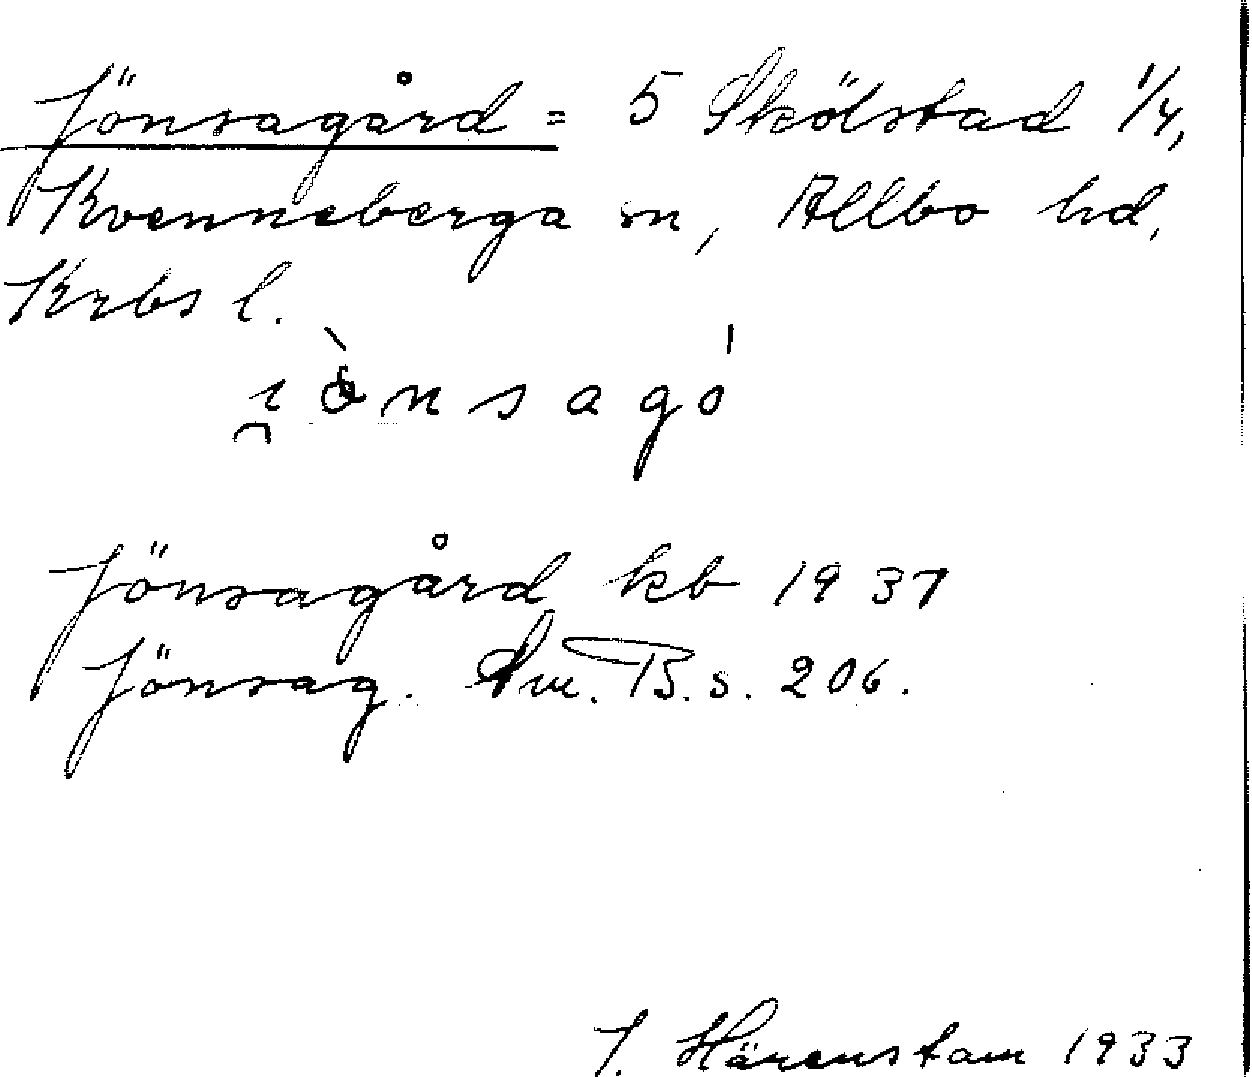 Jönsagård = 5 Skölstad 1/4,
Kvenneberga sn, Allbo hd,
Krbs l.
i̯ònsagó
Jönsagård kb 1937
Jönsag. Sm. B. s. 206.
J. Härenstam 1933